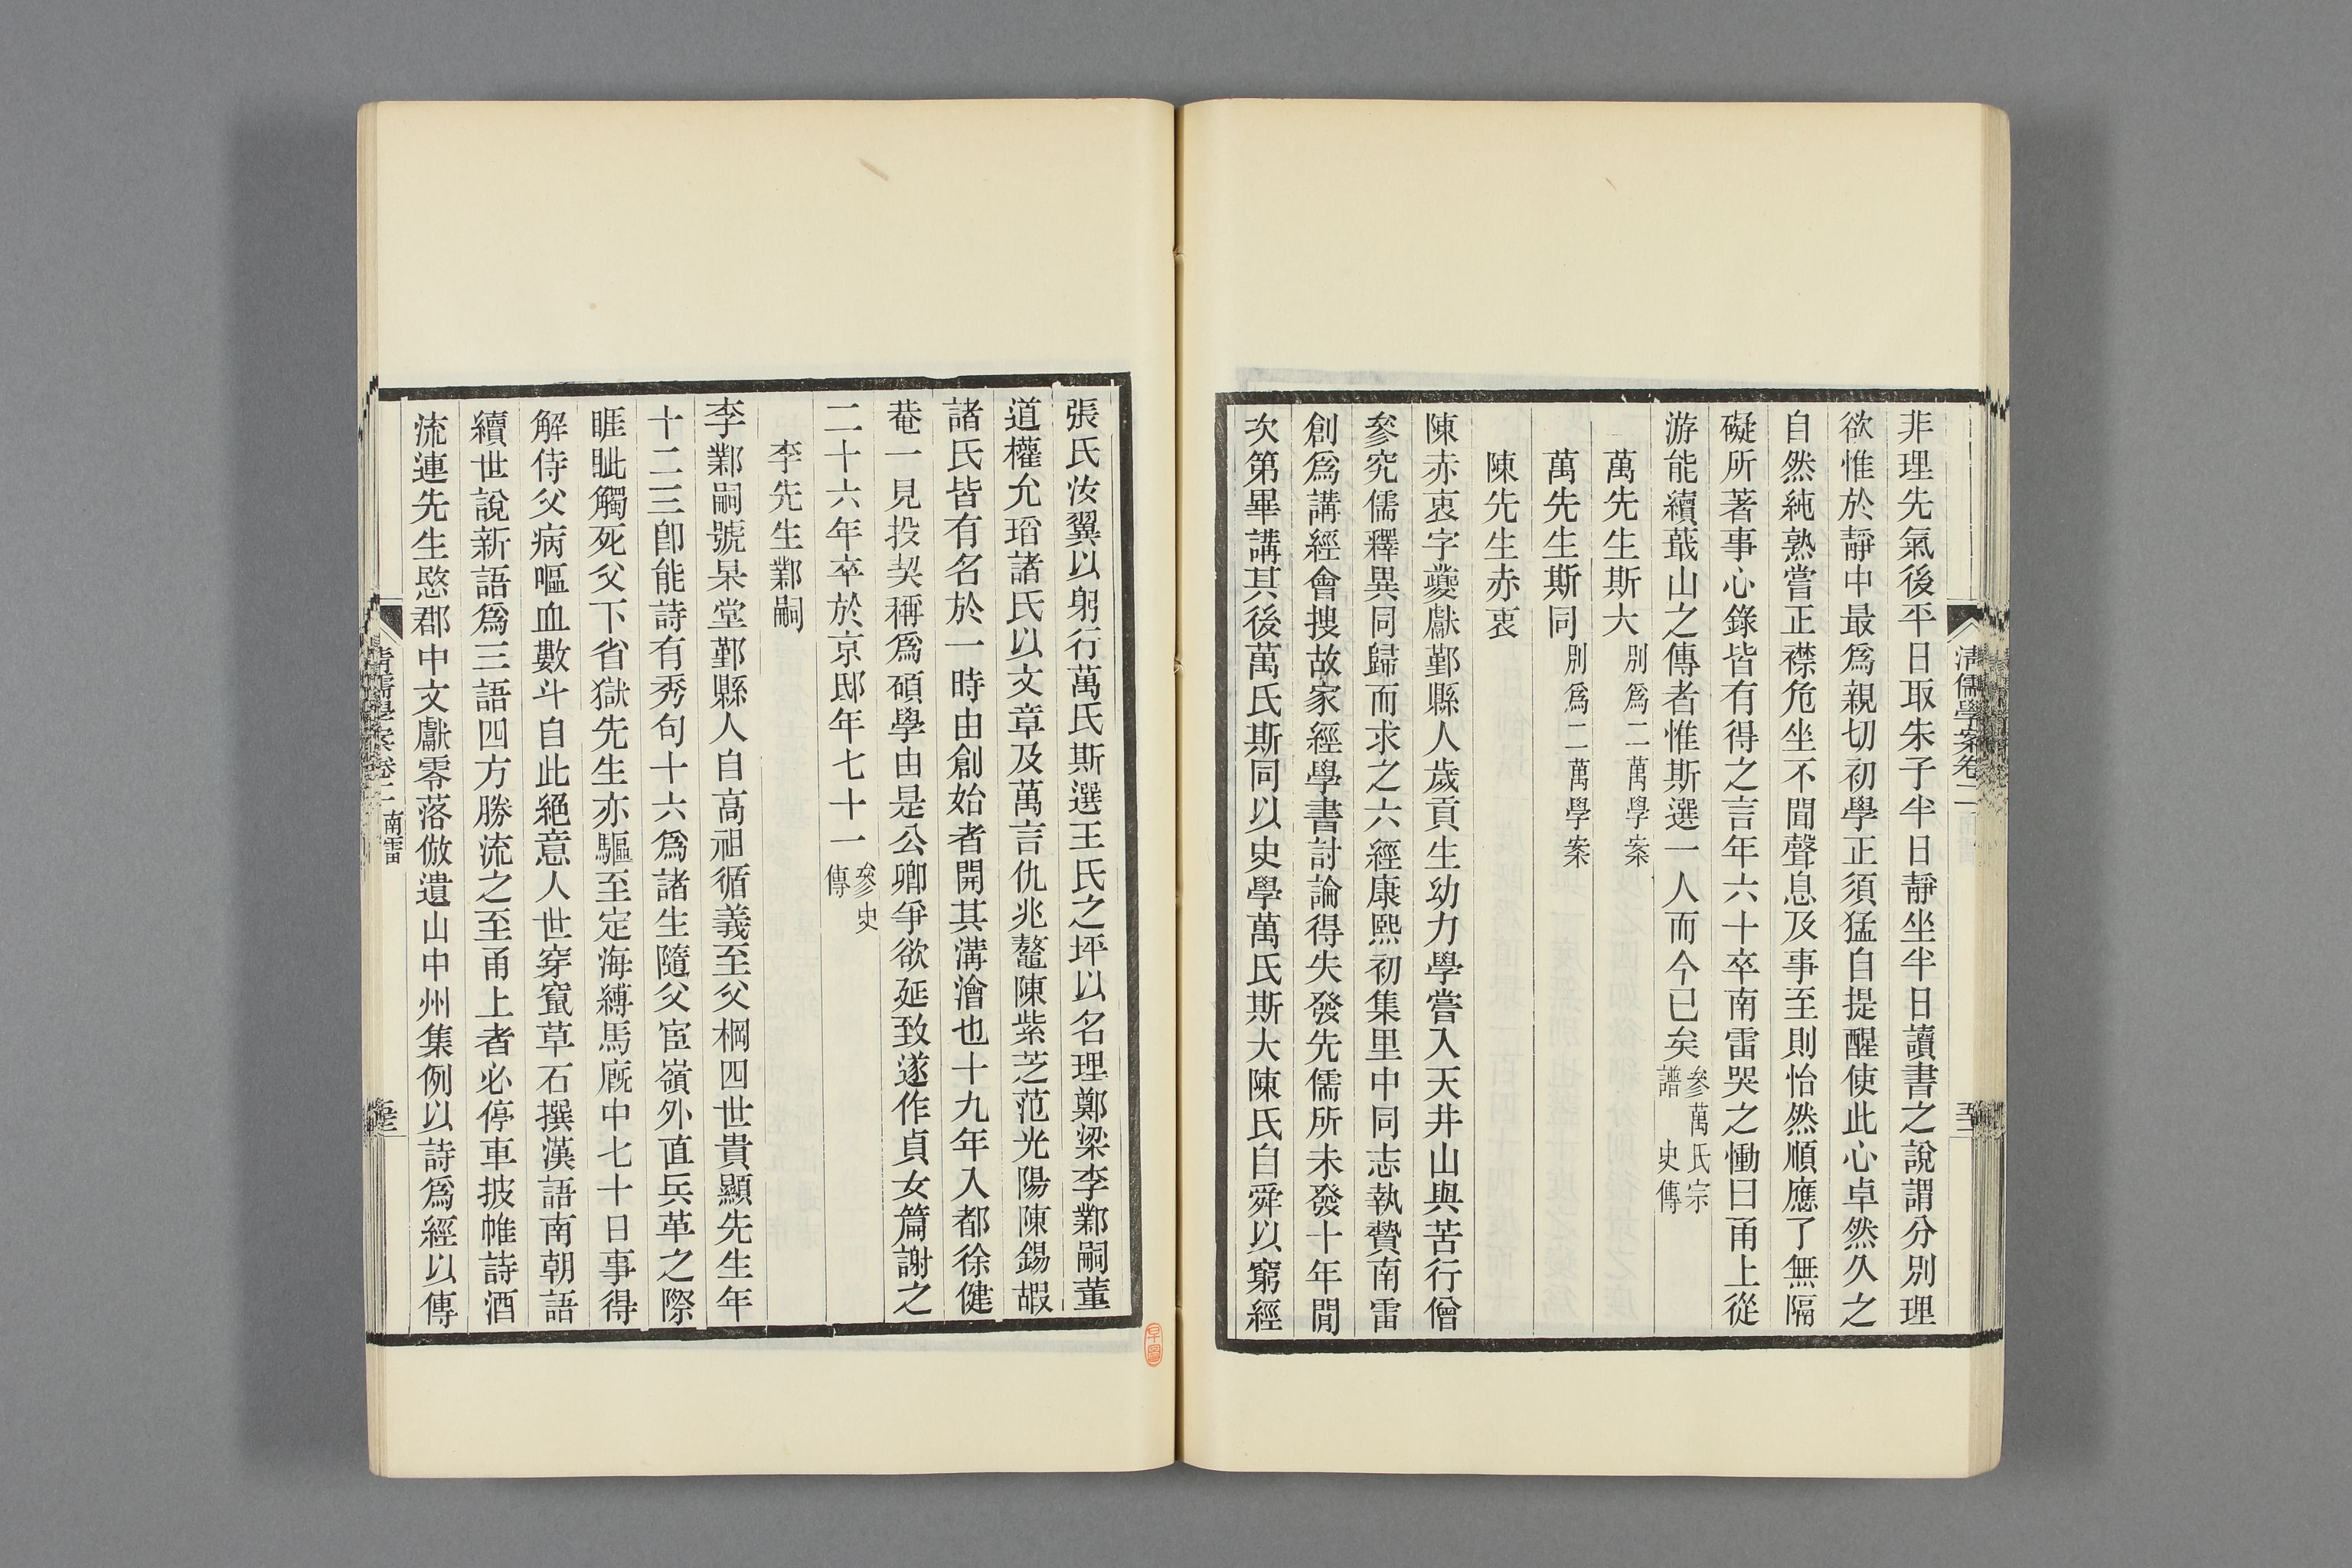 清儒學案卷二
非理先氣後平日取朱子半日靜坐半日讀書之說謂分別理
欲惟於靜中最爲親切初學正須猛自提醒使此心卓然久之
自然純熟嘗正襟危坐不聞聲息及事至則怡然順應了無隔
礙所著事心錄皆有得之言年六十卒南雷哭之慟曰甬上從
游能續蕺山之傳者惟斯選一人而今已矣參萬氏宗譜史傳
萬先生斯大別爲二萬學案
萬先生斯同別爲二萬學案
陳先生赤衷
陳赤衷字夔獻鄞縣人歲貢生幼力學嘗入天井山與苦行僧
參究儒釋異同歸而求之六經康熙初集里中同志執贄南雷
創爲講經會搜故家經學書討論得失發先儒所未發十年閒
次第畢講其後萬氏斯同以史學萬氏斯大陳氏自舜以窮經
張氏汝翼以躬行萬氏斯選王氏之坪以名理鄭梁李鄴嗣董
道權允瑫諸氏以文章及萬言仇兆鼇陳紫芝范光陽陳錫嘏
諸氏皆有名於一時由創始者開其溝澮也十九年入都徐健
菴一見投契稱爲碩學由是公卿爭欲延致遂作貞女篇謝之
二十六年卒於京邸年七十一參史傳
李先生鄴嗣
李鄴嗣號杲堂鄞縣人自高祖循義至父棡四世貴顯先生年
十二三卽能詩有秀句十六爲諸生隨父宦嶺外直兵革之際
睚眦觸死父下省獄先生亦驅至定海縛馬廐中七十日事得
解侍父病嘔血數斗自此絕意人世穿窀草石撰漢語南朝語
續世說新語爲三語四方勝流之至甬上者必停車披帷詩酒
流連先生愍郡中文獻零落倣遺山中州集例以詩爲經以傳
清儒學案卷二 南雷